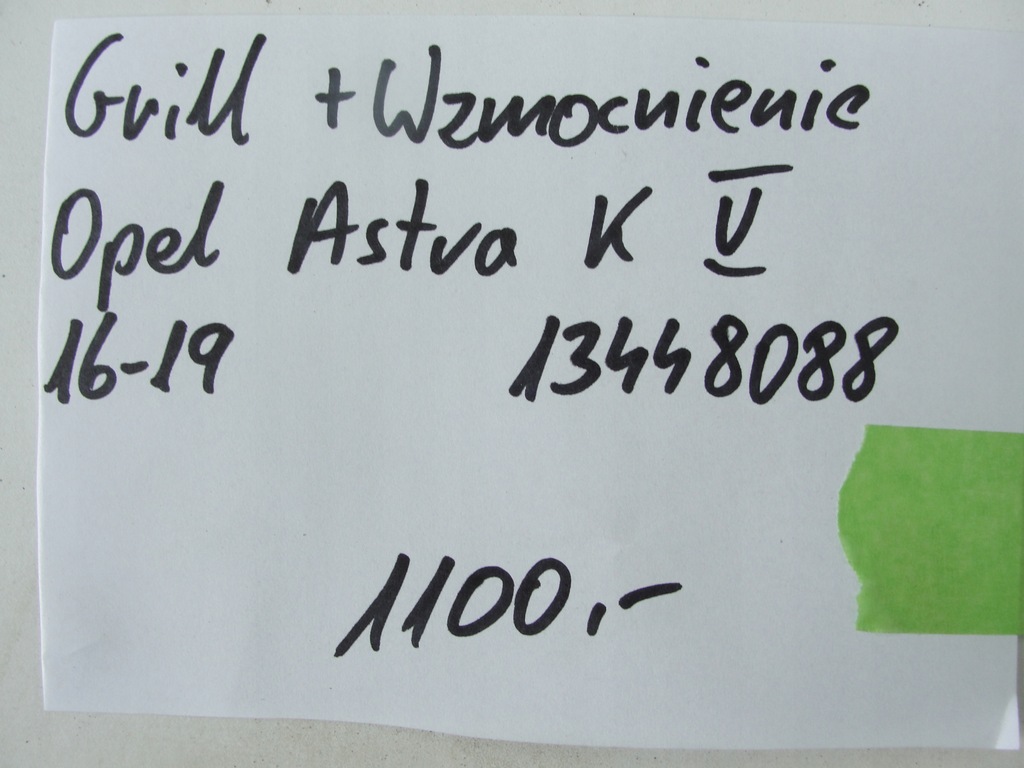 Grill + Wzmocnienie
Opel Astra K V
16-19 13448088
1100,-